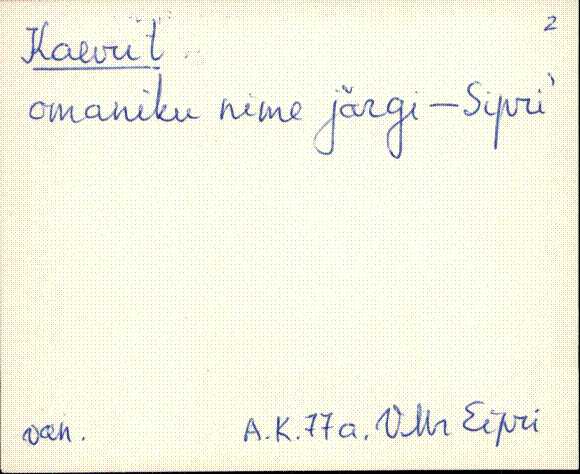 2
Kaevut
omaniku nime järgi – Sipri
van. A.K. 77a. VMr Eipri